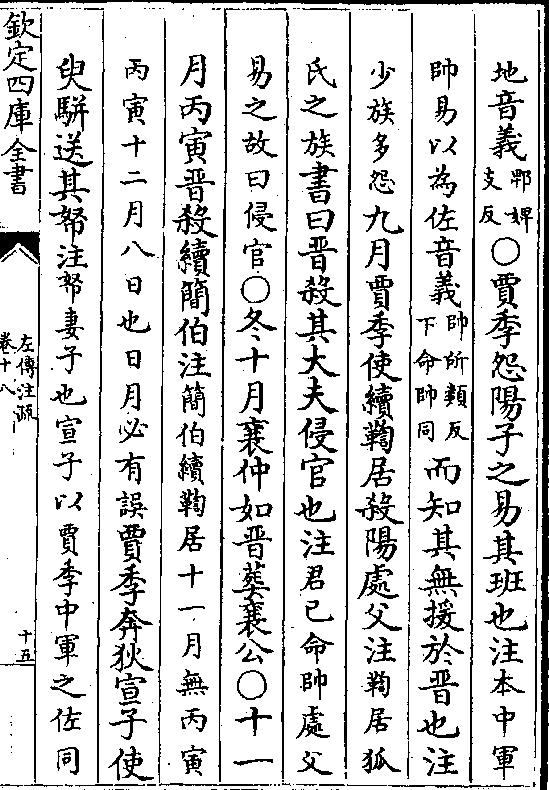 地音義郫婢支反〇賈季怨陽子之易其班也注本中軍
帥易以為佐音義帥所類反下命帥同而知其無援於晉也注
少族多怨九月賈季使續鞫居殺陽處父注鞫居狐
氏之族書曰晉殺其大夫侵官也注君已命帥處父
易之故曰侵官〇冬十月襄仲如晉葬襄公〇十一
月丙寅晉殺續簡伯注簡伯續鞫居十一月無丙寅
丙寅十二月八日也日月必有誤賈季奔狄宣子使
臾駢送其帑注帑妻子也宣子以賈季中軍之佐同
欽定四庫全書
左傳注疏
卷十八
十五